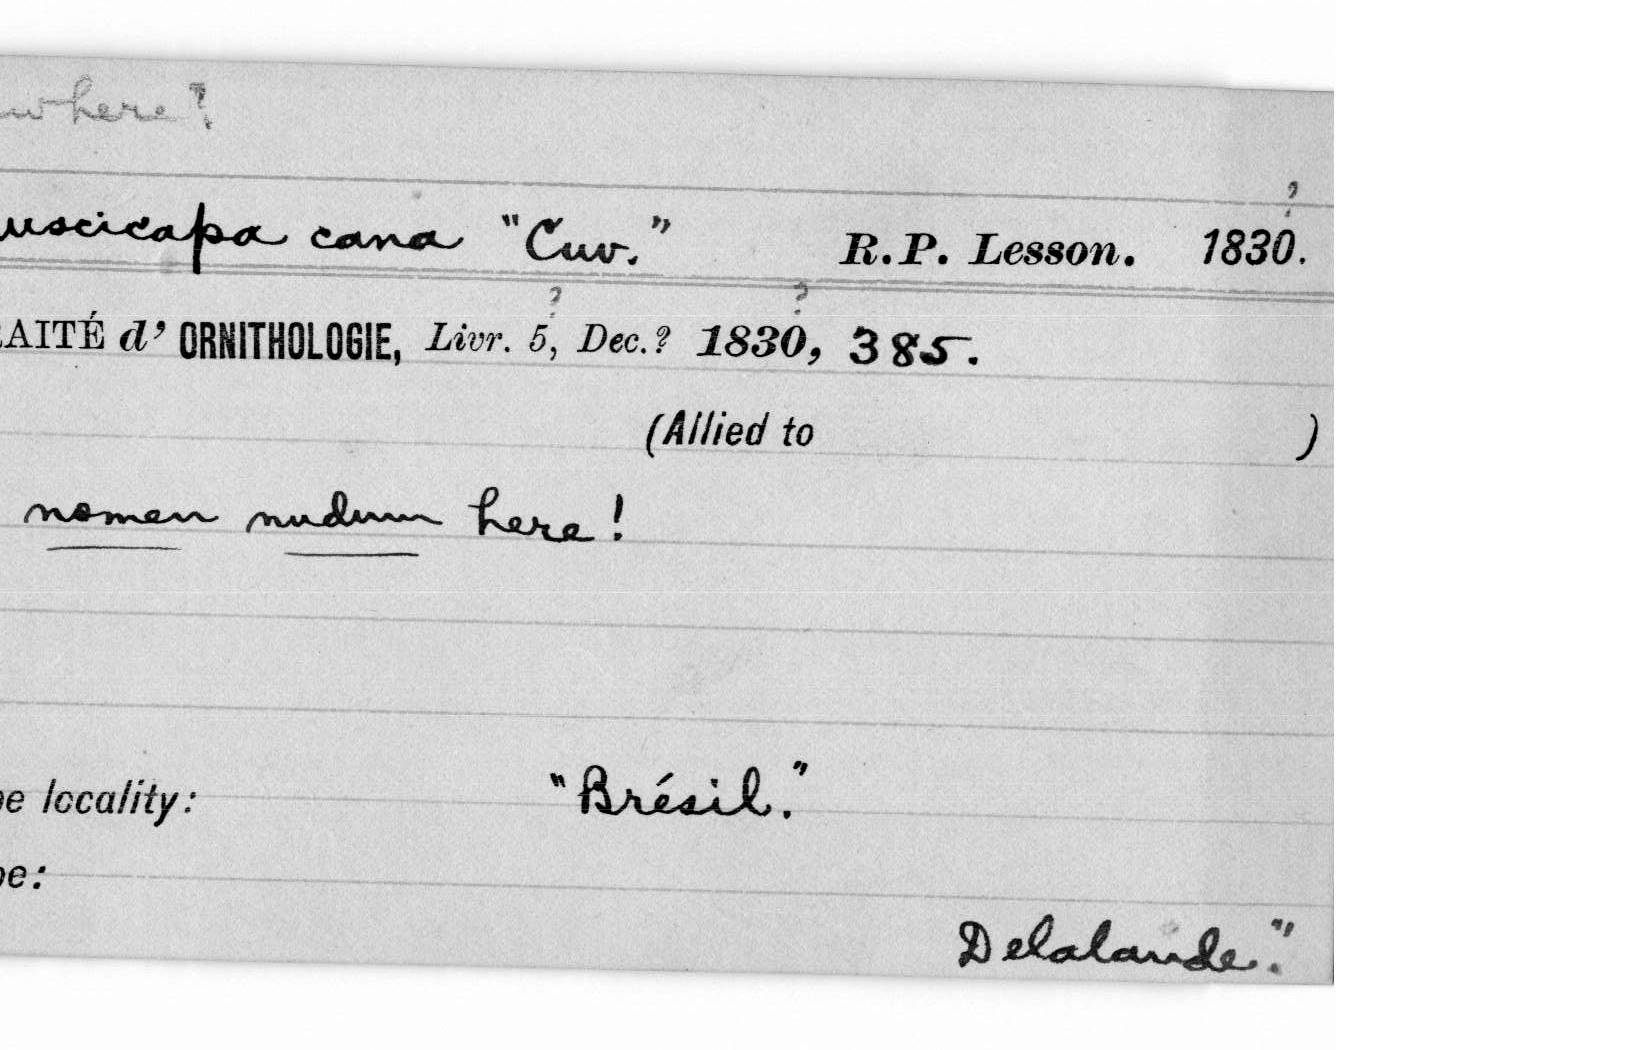 where?
uscicapa cana "Cuv." R.P. Lesson. 1830?.
AITÉ d' ORNITHOLOGIE, Livr. 5?, Dec.? 1830?, 385.
(Allied to )
nomen nudum here!
e locality: "Brésil."
e:
Delalande."